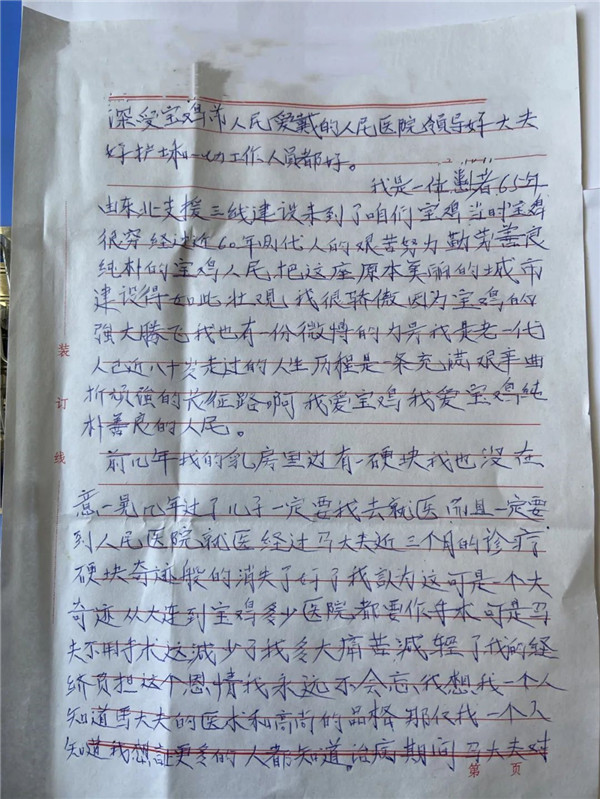 深受宝鸡市人民爱戴的人民医院领导好大夫
好护士和一切工作人员都好。
我是一件患者65年
由东北支援三线建设来到了咱们宝鸡当时宝鸡
很穷经过近60年间几代人的艰苦努力勤劳善良
纯朴的宝鸡人民,把这座原本美丽的城市
建设得如此壮观我很骄傲因为宝鸡的
强大腾飞我也有一份微博的力量我是老一代
人已近八十岁走过的人生历程是一条充满艰辛曲
折顽强的长征路啊我爱宝鸡我爱宝鸡纯
朴善良的人民。
前几年我的乳房里边有一硬块我也没在
意一晃几年过了儿子一定要我去就医而且一定要
到人民医院就医经过马大夫近三个月的诊疗
硬块奇迹般的消失了好了我认为这可是一个大
奇迹从大连到宝鸡多少医院都要作手术可是马
夫不用手术这减少了我多大痛苦减轻了我的经
济负担这个恩情我永远不会忘,我想我一个人
知道马大夫的医术和高尚的品格那仅我一个人
知道我想让更多的人都知道。治病期间马大夫对
装
订
线
第 页